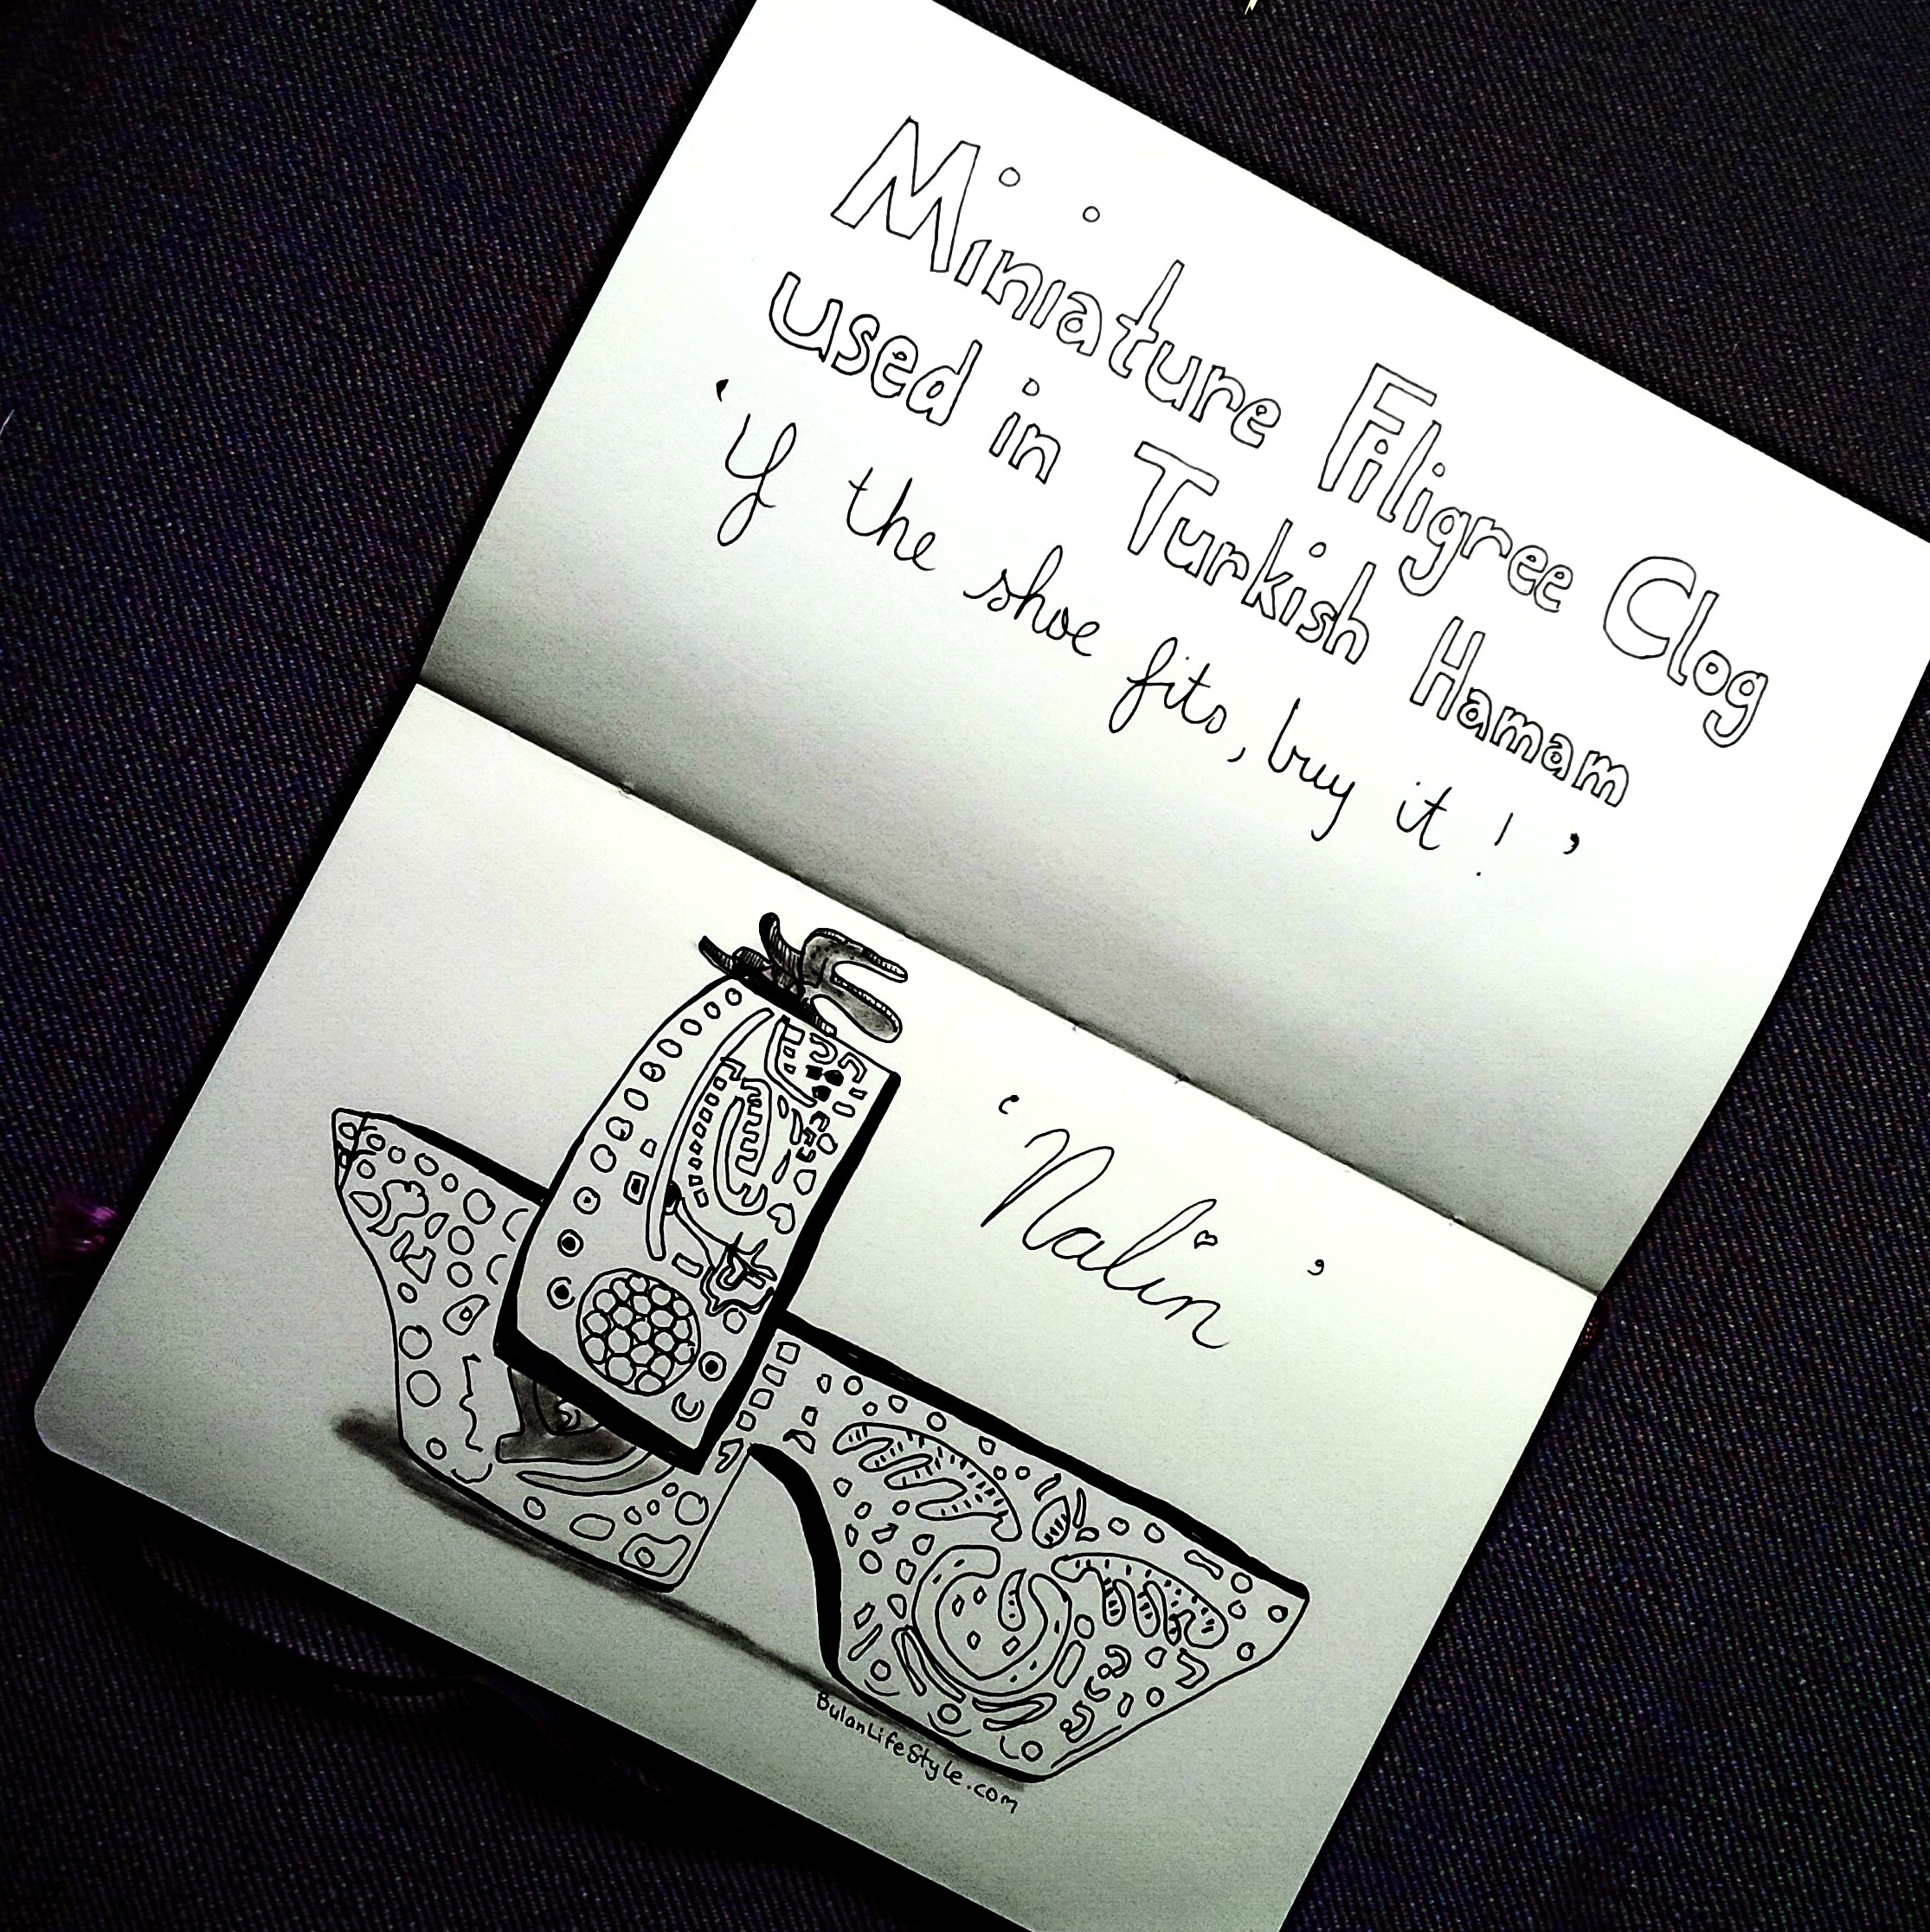 Miniature Filigree Clog
used in Turkish Hamam
'If the shoe fits, buy it!'
'Nalin'
BulanLifeStyle.com